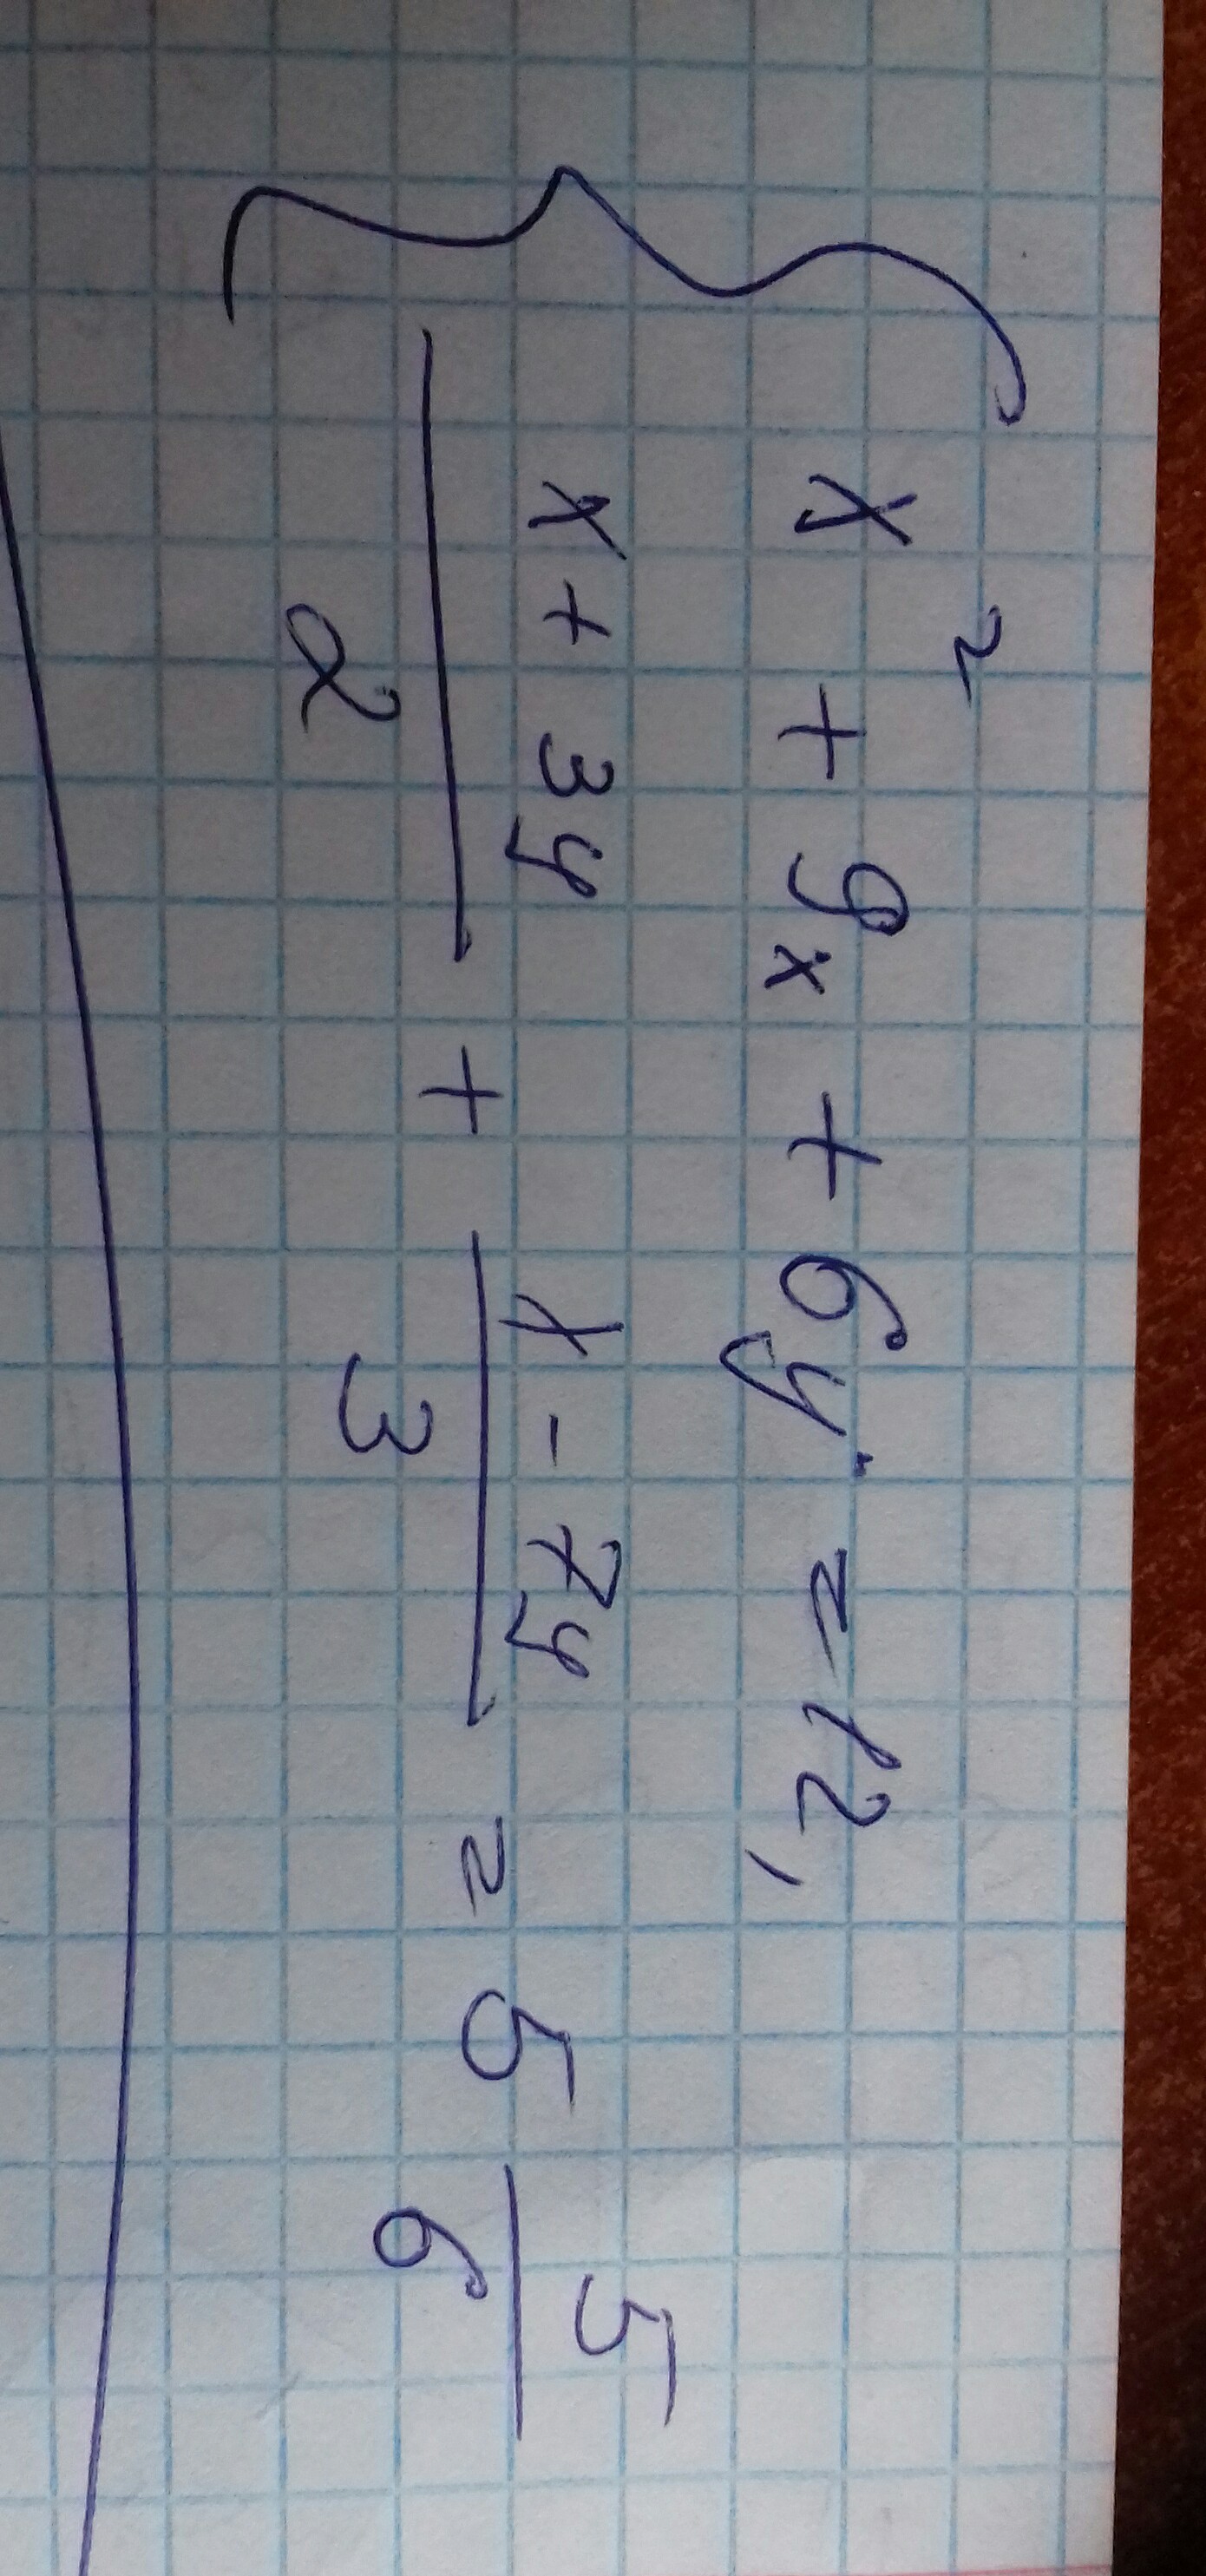 x² + 9x + 6y = 12,
(x + 3y)/2 + (x - 7y)/3 = 5 5/6